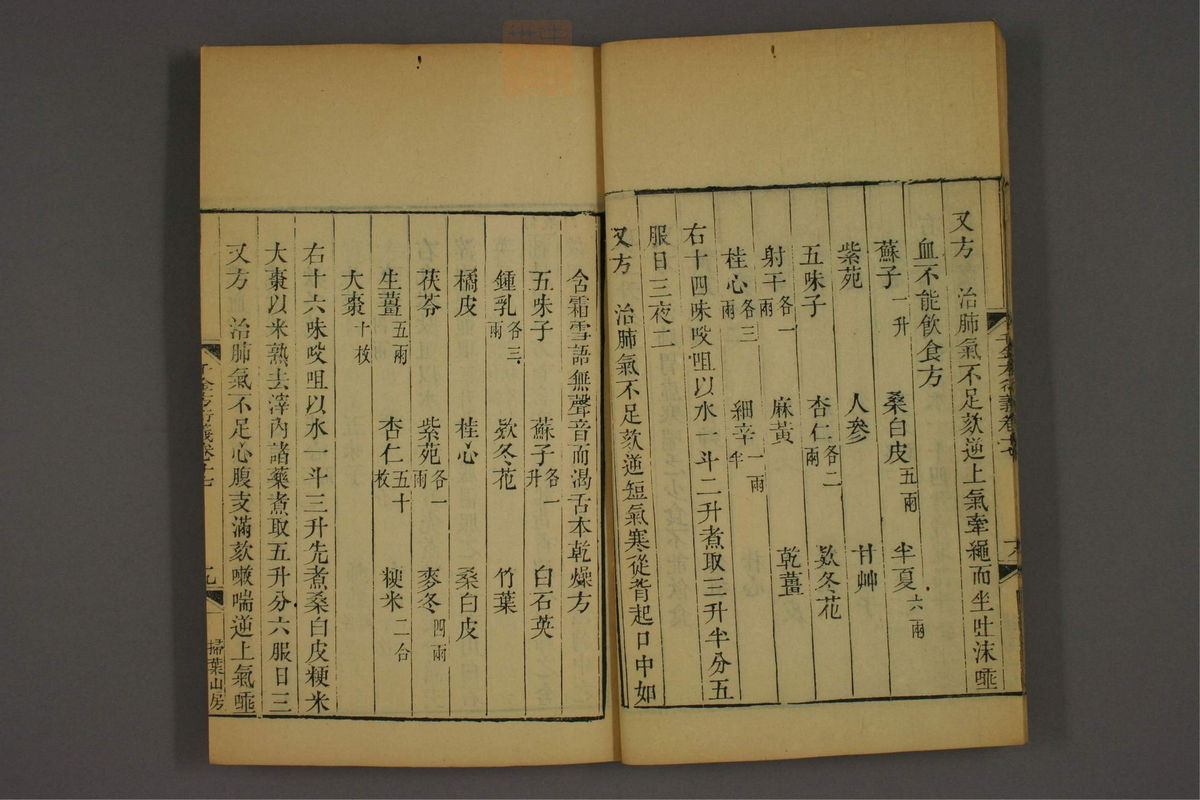 又方　治肺氣不足欬逆上氣牽繩而坐吐沫唾
血不能飲食方
蘇子一升　桑白皮五兩　半夏六兩
紫苑　人參　甘艸
五味子　杏仁各二兩　欵冬花
射干各一兩　麻黃　乾薑
桂心各三兩　細辛一兩半
右十四味㕮咀以水一斗二升煮取三升半分五
服日三夜二
又方　治肺氣不足欬逆短氣寒從背起口中如
含霜雪語無聲音而渴舌本乾燥方
五味子　蘇子各一升　白石英
鍾乳各三兩　欵冬花　竹葉
橘皮　桂心　桑白皮
茯苓　紫苑各一兩　麥冬四兩
生薑五兩　杏仁五十枚　粳米二合
大棗十枚
右十六味㕮咀以水一斗三升先煮桑白皮粳米
大棗以米熟去滓內諸藥煮取五升分六服日三
又方　治肺氣不足心腹支滿欬嗽喘逆上氣唾
千金方衍義卷十七
九
掃葉山房